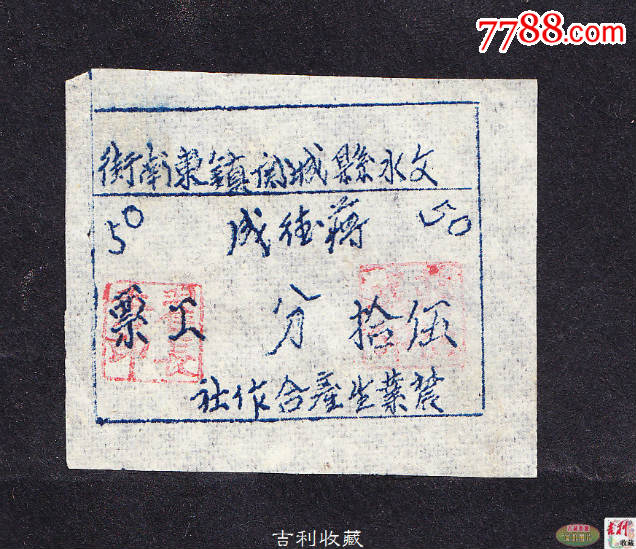 7788.com
文水縣城関鎮東南街
50
蔣德成
50
伍拾分工票
農業生產合作社
吉利收藏